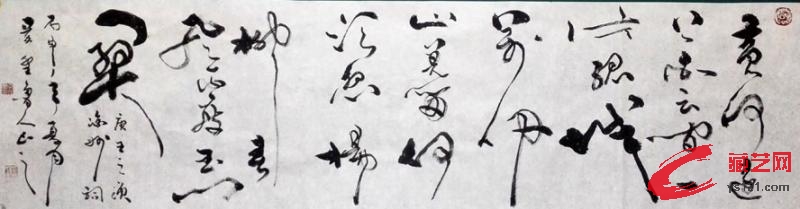 黄河远
上白云间一
片孤城
万仞
山羌笛何
须怨杨
柳春
风不度玉门
关
唐王之涣
凉州词
丙申之夏月